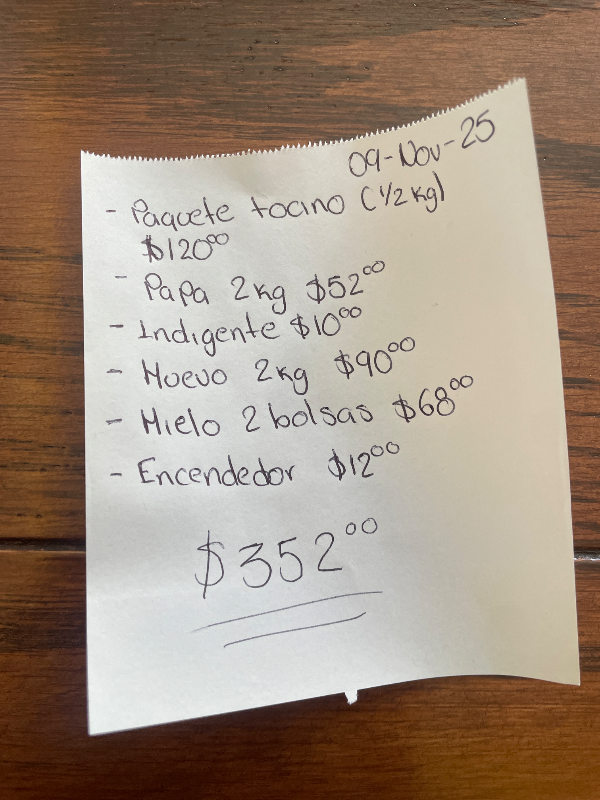 09-Nov-25
- Paquete tocino (1/2 kg)
$120⁰⁰
- Papa 2kg $52⁰⁰
- Indigente $10⁰⁰
- Huevo 2kg $90⁰⁰
- Hielo 2 bolsas $68⁰⁰
- Encendedor $12⁰⁰
$352⁰⁰